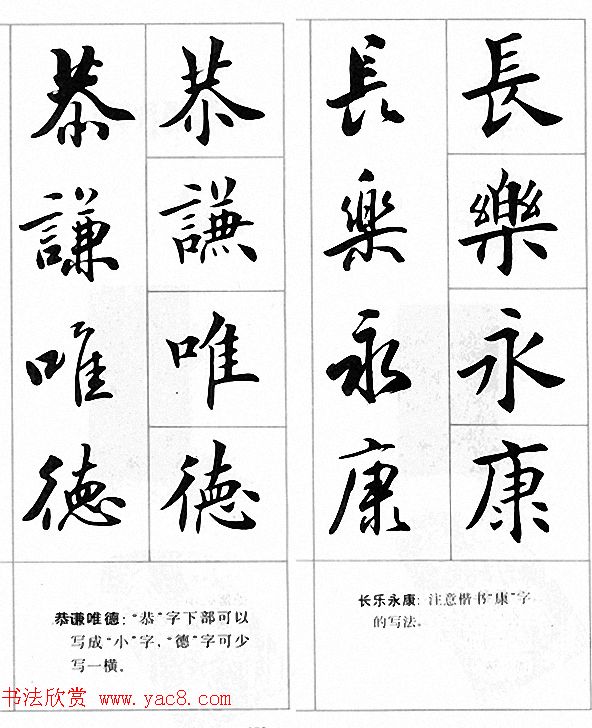 恭謙唯徳
恭謙唯徳
恭谦唯德：“恭”字下部可以
写成“小”字，“德”字可少
写一横。
長楽永康
長樂永康
长乐永康：注意楷书“康”字
的写法。
书法欣赏 www.yac8.com